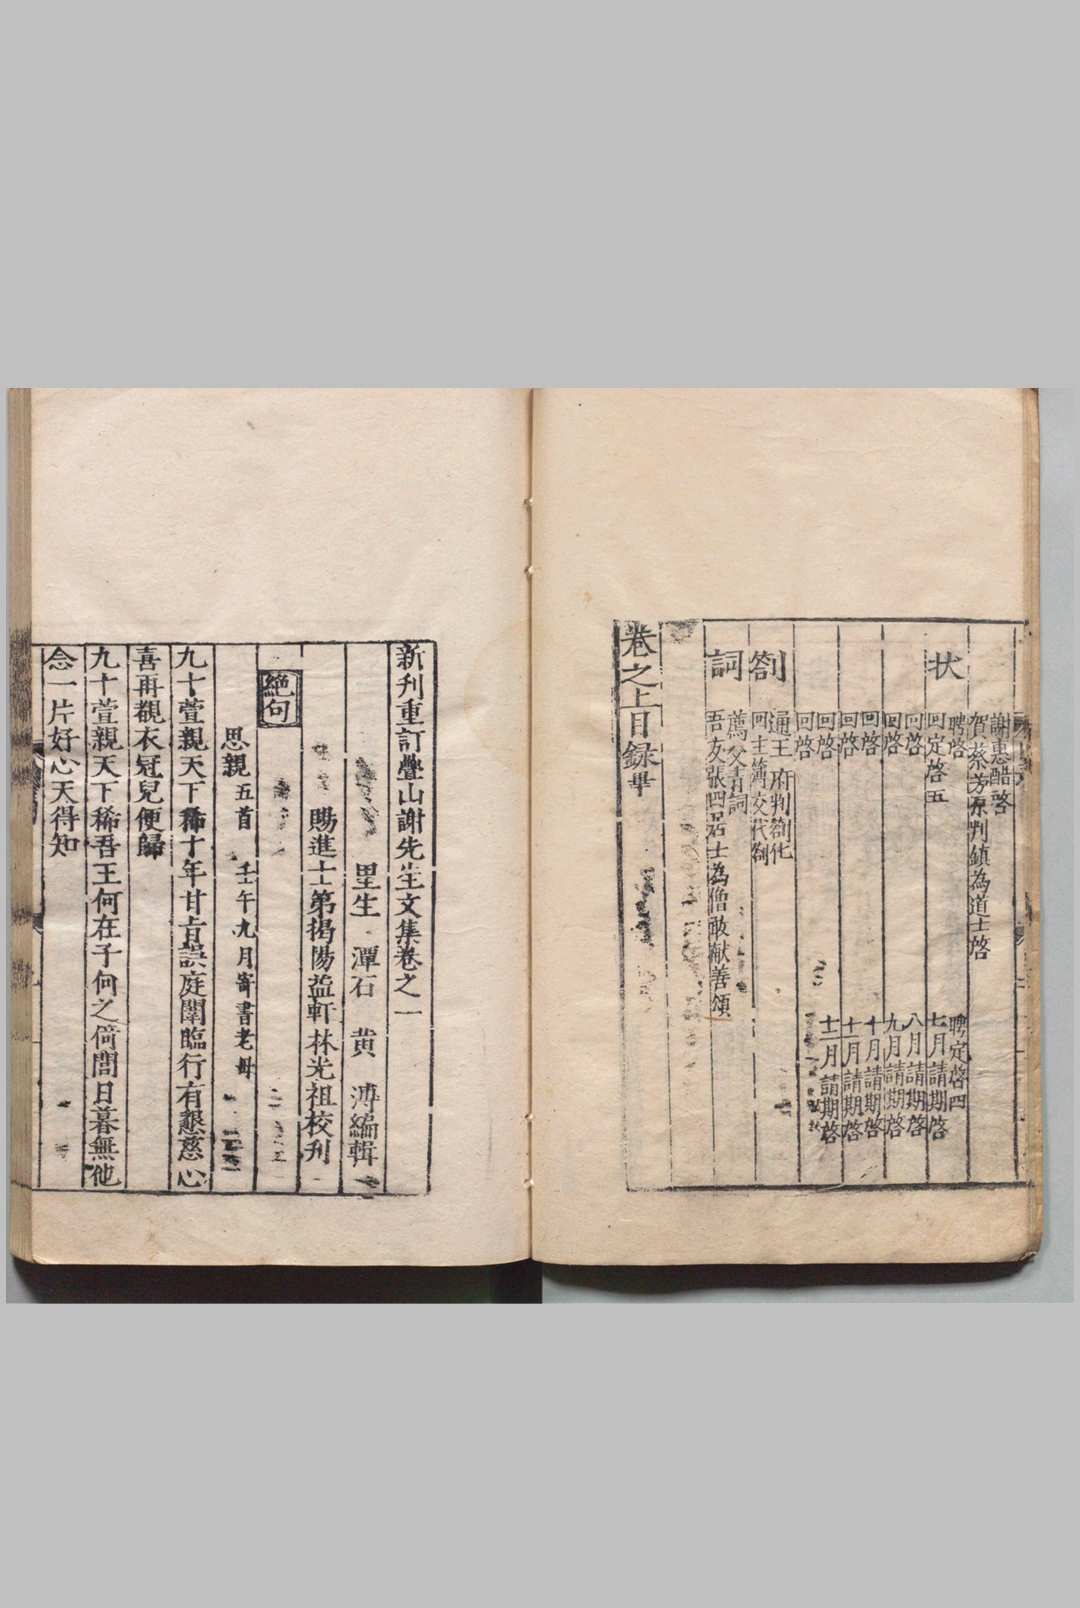 謝惠醋啓
賀蔡芳原判鎮為道士啓
状
聘啓 聘定啓四
回定啓五 七月請期啓
回啓 八月請期啓
回啓 九月請期啓
回啓 十月請期啓
回啓 十一月請期啓
回啓 十二月請期啓
回啓
劄
通王府判劄化
回主簿交代劄
詞
薦父青詞
吾友張四居士為僧敢献善頌
卷之上目録畢
新刊重訂疊山謝先生文集卷之一
里生 潭石 黄 溥編輯
賜進士第揭陽益軒林光祖校刋
絶句
思親五首 壬午九月寄書老母
九十萱親天下稀十年甘旨誤庭闈臨行有懇慈心
喜再覩衣冠兒便歸
九十萱親天下稀吾王何在子何之倚閭日暮無他
念一片好心天得知